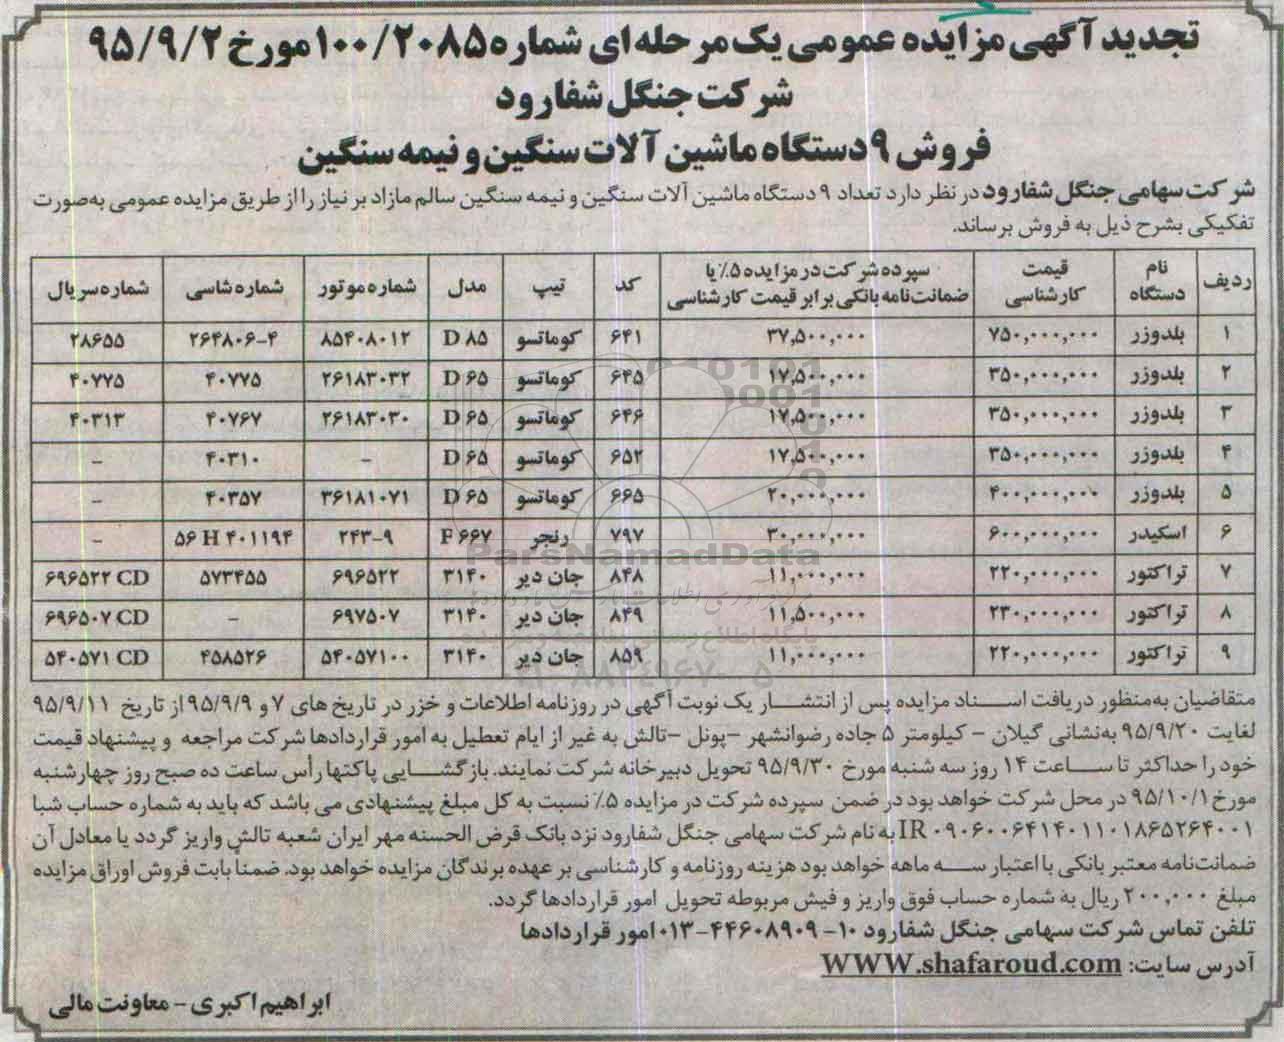 تجدید آگهی مزایده عمومی یک مرحله‌ای شماره ۱۰۰/۲۰۸۵ مورخ ۹۵/۹/۲
شرکت جنگل شفارود
فروش ۹ دستگاه ماشین آلات سنگین و نیمه سنگین
شرکت سهامی جنگل شفارود در نظر دارد تعداد ۹ دستگاه ماشین آلات سنگین و نیمه سنگین سالم مازاد بر نیاز را از طریق مزایده عمومی به‌صورت
تفکیکی بشرح ذیل به فروش برساند.
ردیف | نام دستگاه | قیمت کارشناسی | سپرده شرکت در مزایده ۵٪ یا ضمانت‌نامه بانکی برابر قیمت کارشناسی | کد | تیپ | مدل | شماره موتور | شماره شاسی | شماره سریال
۱ | بلدوزر | ۷۵۰,۰۰۰,۰۰۰ | ۳۷,۵۰۰,۰۰۰ | ۶۴۱ | کوماتسو | D ۸۵ | ۸۵۴۰۸۰۱۲ | ۲۶۴۸۰۶-۴ | ۲۸۶۵۵
۲ | بلدوزر | ۳۵۰,۰۰۰,۰۰۰ | ۱۷,۵۰۰,۰۰۰ | ۶۴۵ | کوماتسو | D ۶۵ | ۲۶۱۸۳۰۳۲ | ۴۰۷۷۵ | ۴۰۷۷۵
۳ | بلدوزر | ۳۵۰,۰۰۰,۰۰۰ | ۱۷,۵۰۰,۰۰۰ | ۶۴۶ | کوماتسو | D ۶۵ | ۲۶۱۸۳۰۳۰ | ۴۰۷۶۷ | ۴۰۳۱۳
۴ | بلدوزر | ۳۵۰,۰۰۰,۰۰۰ | ۱۷,۵۰۰,۰۰۰ | ۶۵۲ | کوماتسو | D ۶۵ | - | ۴۰۳۱۰ | -
۵ | بلدوزر | ۴۰۰,۰۰۰,۰۰۰ | ۲۰,۰۰۰,۰۰۰ | ۶۶۵ | کوماتسو | D ۶۵ | ۳۶۱۸۱۰۷۱ | ۴۰۳۵۷ | -
۶ | اسکیدر | ۶۰۰,۰۰۰,۰۰۰ | ۳۰,۰۰۰,۰۰۰ | ۷۹۷ | رنجر | F ۶۶۷ | ۲۴۳-۹ | ۵۶ H ۴۰۱۱۹۴ | -
۷ | تراکتور | ۲۲۰,۰۰۰,۰۰۰ | ۱۱,۰۰۰,۰۰۰ | ۸۴۸ | جان دیر | ۳۱۴۰ | ۶۹۶۵۲۲ | ۵۷۳۴۵۵ | ۶۹۶۵۲۲ CD
۸ | تراکتور | ۲۳۰,۰۰۰,۰۰۰ | ۱۱,۵۰۰,۰۰۰ | ۸۴۹ | جان دیر | ۳۱۴۰ | ۶۹۷۵۰۷ | - | ۶۹۶۵۰۷ CD
۹ | تراکتور | ۲۲۰,۰۰۰,۰۰۰ | ۱۱,۰۰۰,۰۰۰ | ۸۵۹ | جان دیر | ۳۱۴۰ | ۵۴۰۵۷۱۰۰ | ۴۵۸۵۲۶ | ۵۴۰۵۷۱ CD
ParsNamadData
متقاضیان به‌منظور دریافت اسناد مزایده پس از انتشار یک نوبت آگهی در روزنامه اطلاعات و خزر در تاریخ های ۷ و ۹۵/۹/۹ از تاریخ ۹۵/۹/۱۱
لغایت ۹۵/۹/۲۰ به‌نشانی گیلان – کیلومتر ۵ جاده رضوانشهر –پونل –تالش به غیر از ایام تعطیل به امور قراردادها شرکت مراجعه و پیشنهاد قیمت
خود را حداکثر تا ساعت ۱۴ روز سه شنبه مورخ ۹۵/۹/۳۰ تحویل دبیرخانه شرکت نمایند. بازگشایی پاکتها رأس ساعت ده صبح روز چهارشنبه
مورخ ۹۵/۱۰/۱ در محل شرکت خواهد بود در ضمن سپرده شرکت در مزایده ۵٪ نسبت به کل مبلغ پیشنهادی می باشد که باید به شماره حساب شبا
IR ۰۹۰۶۰۰۶۴۱۴۰۱۱۰۱۸۶۵۲۶۴۰۰۱ به نام شرکت سهامی جنگل شفارود نزد بانک قرض الحسنه مهر ایران شعبه تالش واریز گردد یا معادل آن
ضمانت‌نامه معتبر بانکی با اعتبار سه ماهه خواهد بود هزینه روزنامه و کارشناسی بر عهده برندگان مزایده خواهد بود. ضمناً بابت فروش اوراق مزایده
مبلغ ۲۰۰,۰۰۰ ریال به شماره حساب فوق واریز و فیش مربوطه تحویل امور قراردادها گردد.
تلفن تماس شرکت سهامی جنگل شفارود ۱۰- ۴۴۶۰۸۹۰۹-۰۱۳ امور قراردادها
آدرس سایت: WWW.shafaroud.com
ابراهیم اکبری – معاونت مالی